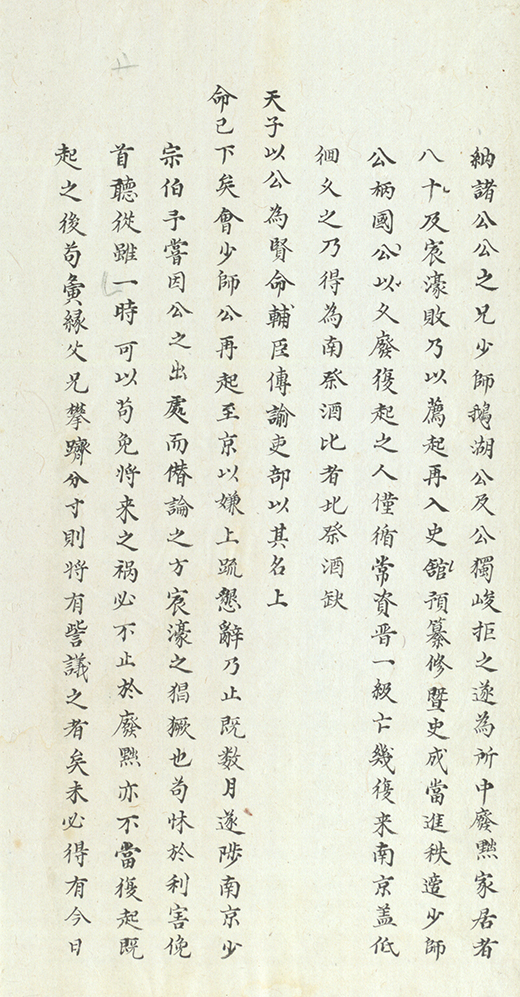 納諸公公之兄少師鵝湖公及公獨峻拒之遂為所中廢黜家居者
八十及宸濠敗乃以薦起再入史舘預纂修暨史成當進秩遭少師
公柄國公以久廢復起之人僅循常資晋一級亡幾復来南京盖低
徊久之乃得為南祭酒比者北祭酒缺
天子以公為賢命輔臣傳諭吏部以其名上
命已下矣會少師公再起至京以嫌上疏懇辭乃止既数月遂陟南京少
宗伯予嘗因公之出處而僣論之方宸濠之猖獗也苟怵於利害俛
首聽從雖一時可以苟免将来之祸必不止於廢黜亦不當復起既
起之後苟夤縁父兄攀躋分寸則将有訾議之者矣未必得有今日